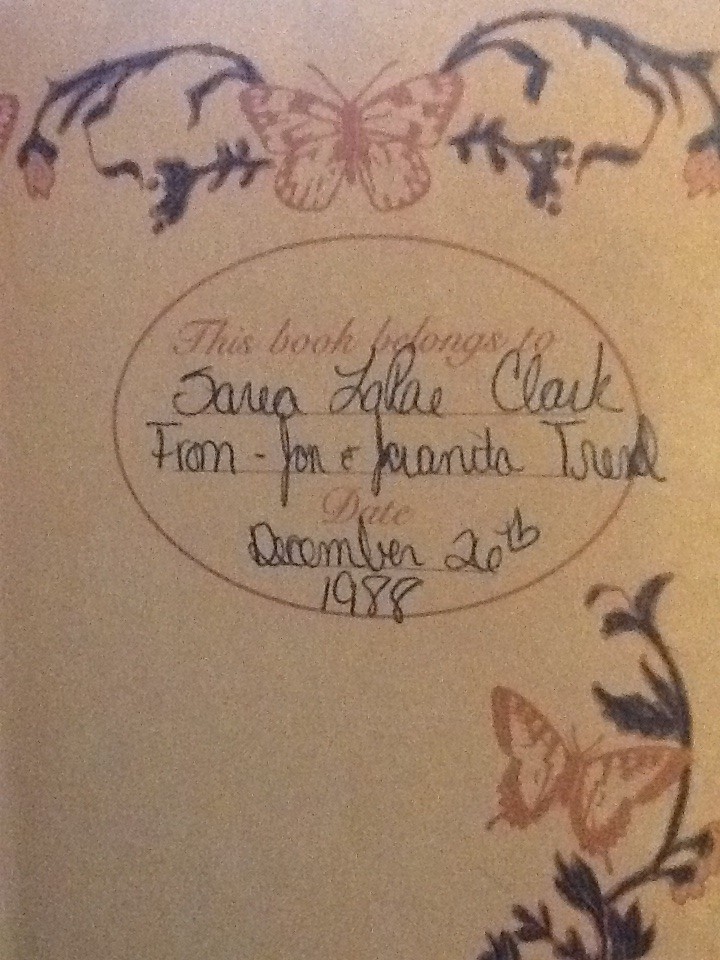 This book belongs to
Sarea LaRae Clark
From - Jon & Juanita Trend
Date
December 26th
1988